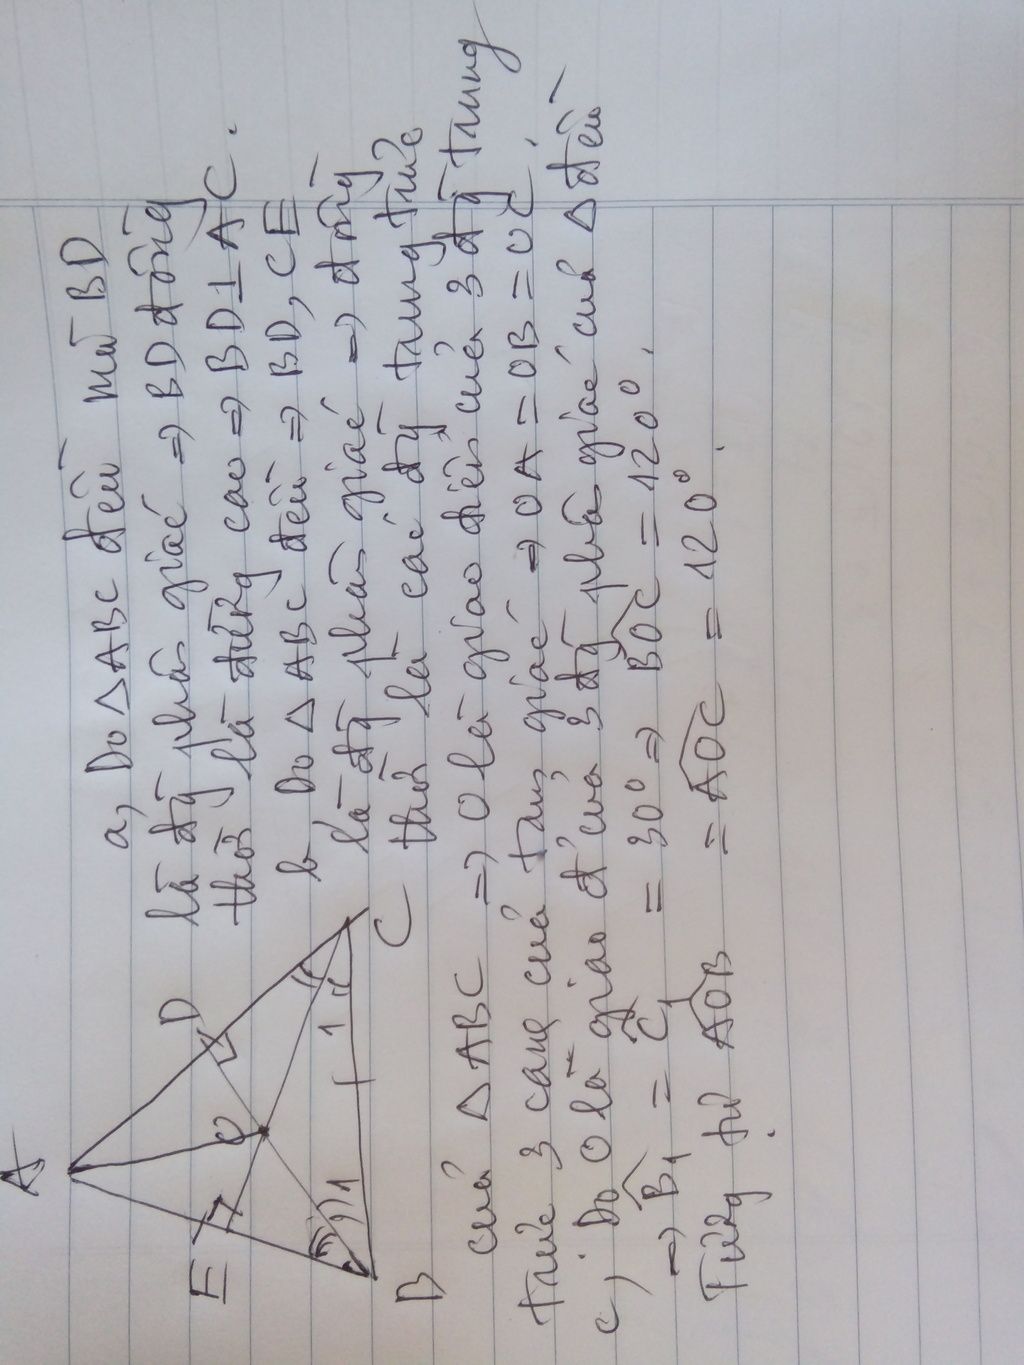 a, Do △ABC đều mà BD
là đg phân giác => BD đồng
thời là đường cao => BD⊥AC.
b, Do △ABC đều => BD, CE
là đg phân giác => đồng
thời là các đg trung trực
của △ABC => O là giao điểm của 3 đg trung
trực 3 cạnh của tam giác => OA = OB = OC.
c, Do O là giao đ' của 3 đg phân giác của △ đều
=> B̂1 = Ĉ1 = 30° => BOC = 120°.
Tương tự AOB = AOC = 120°.
A
E
O
D
B
1
1
C